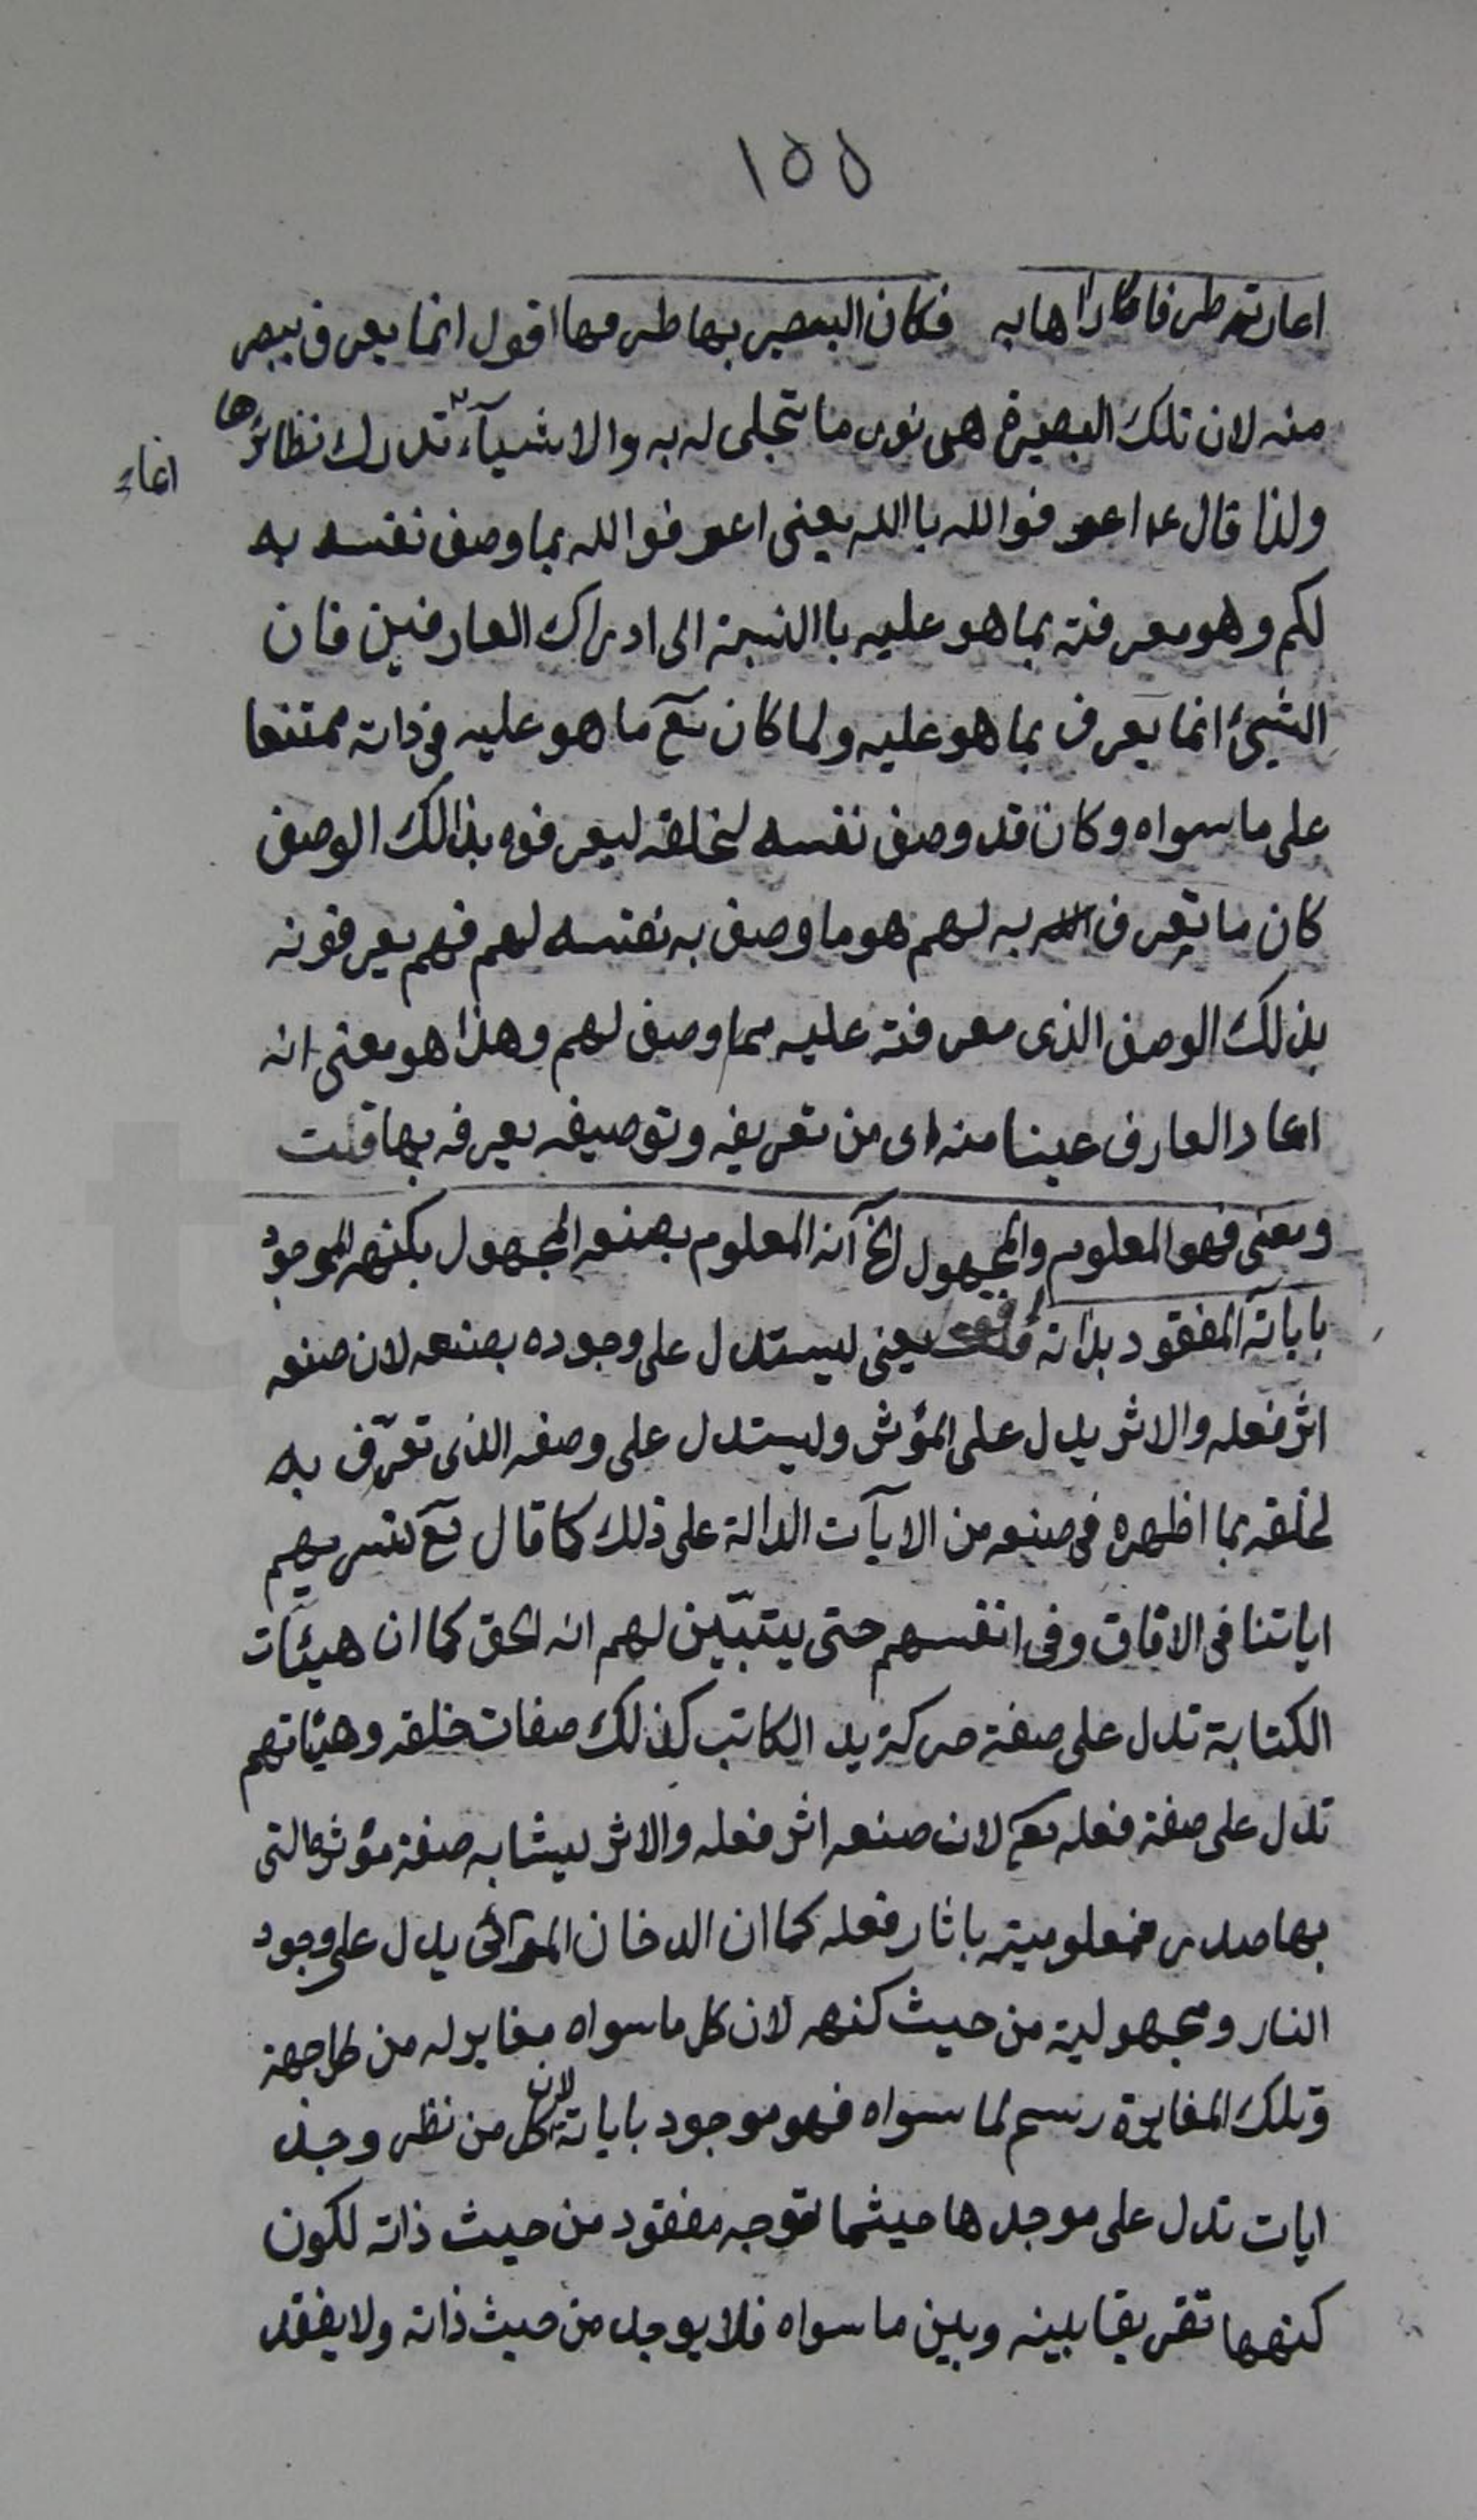 ١٥٥
اعارته طرفا رآها به فكان البصير بها طرفها اقول انما يعرف ببصر
منه لان تلك البصيرة هى نور ما تجلى له به والاشيآء تدرك نظائرها
انما
ولذا قال ع اعرفوا الله باالله يعنى اعرفوا الله بما وصف نفسه به
لكم وهو معرفته بما هو عليه باالنسبة الى ادراك العارفين فان
الشيئ انما يعرف بما هو عليه ولما كان تع ما هو عليه فى ذاته ممتنعا
على ما سواه وكان قد وصف نفسه لخلقه ليعرفوه بذالك الوصف
كان ما تعرف به لهم هو ما وصف به نفسه لهم فهم يعرفونه
بذلك الوصف الذى معرفته عليه مما وصف لهم وهذا هو معنى انه
اعار العارف عينا منه اى من تعريفه وتوصيفه يعرفه بها قلت
ومعنى فهو المعلوم والمجهول الخ آنه المعلوم بصنعه المجهول بكنهه الموجود
باياته المفقود بذاته اقول يعنى ليستدل على وجوده بصنعه لان صنعه
اثر فعله والاثر يدل على المؤثر وليستدل على وصفه الذى تعرّف به
لخلقه بما اظهره فى صنعه من الايآت الدالة على ذلك كما قال تع سنريهم
اياتنا فى الافاق وفى انفسهم حتى يتبيّن لهم انه الحق كما ان هيئات
الكتابة تدل على صفة حركة يد الكاتب كذلك صفات خلقه وهيئاتهم
تدل على صفة فعله تع لان صنعه اثر فعله والاثر ليشابه صفة مؤثره التى
بها صدر فمعلوميته باثار فعله كما ان الدخان المرائى يدل على وجود
النار ومجهوليته من حيث كنهه لان كل ما سواه مغاير له من كل جهة
وتلك المغايرة رسم لما سواه فهو موجود باياته لان كل من نظر وجد
ايات تدل على موجدها حيثما توجه مفقود من حيث ذاته لكون
كنهها تفريقا بينه وبين ما سواه فلا يوجد من حيث ذاته ولا يفقد